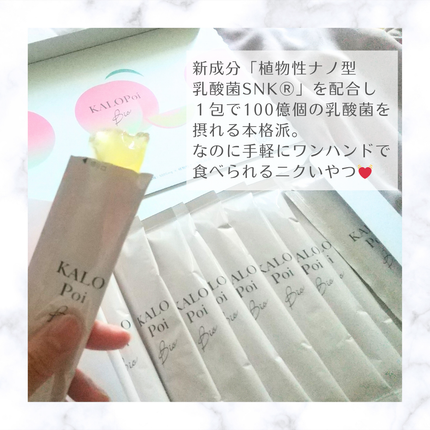 新成分「植物性ナノ型
乳酸菌SNK®」を配合し
１包で100億個の乳酸菌を
摂れる本格派。
なのに手軽にワンハンドで
食べられるニクいやつ❤
KALOPoi
Bio
KALO
Poi
Bio
KALO
Poi
Bio
KALO
Poi
Bio
KALO
Poi
Bio
KALO
Poi
Bio
KALO
Poi
Bio